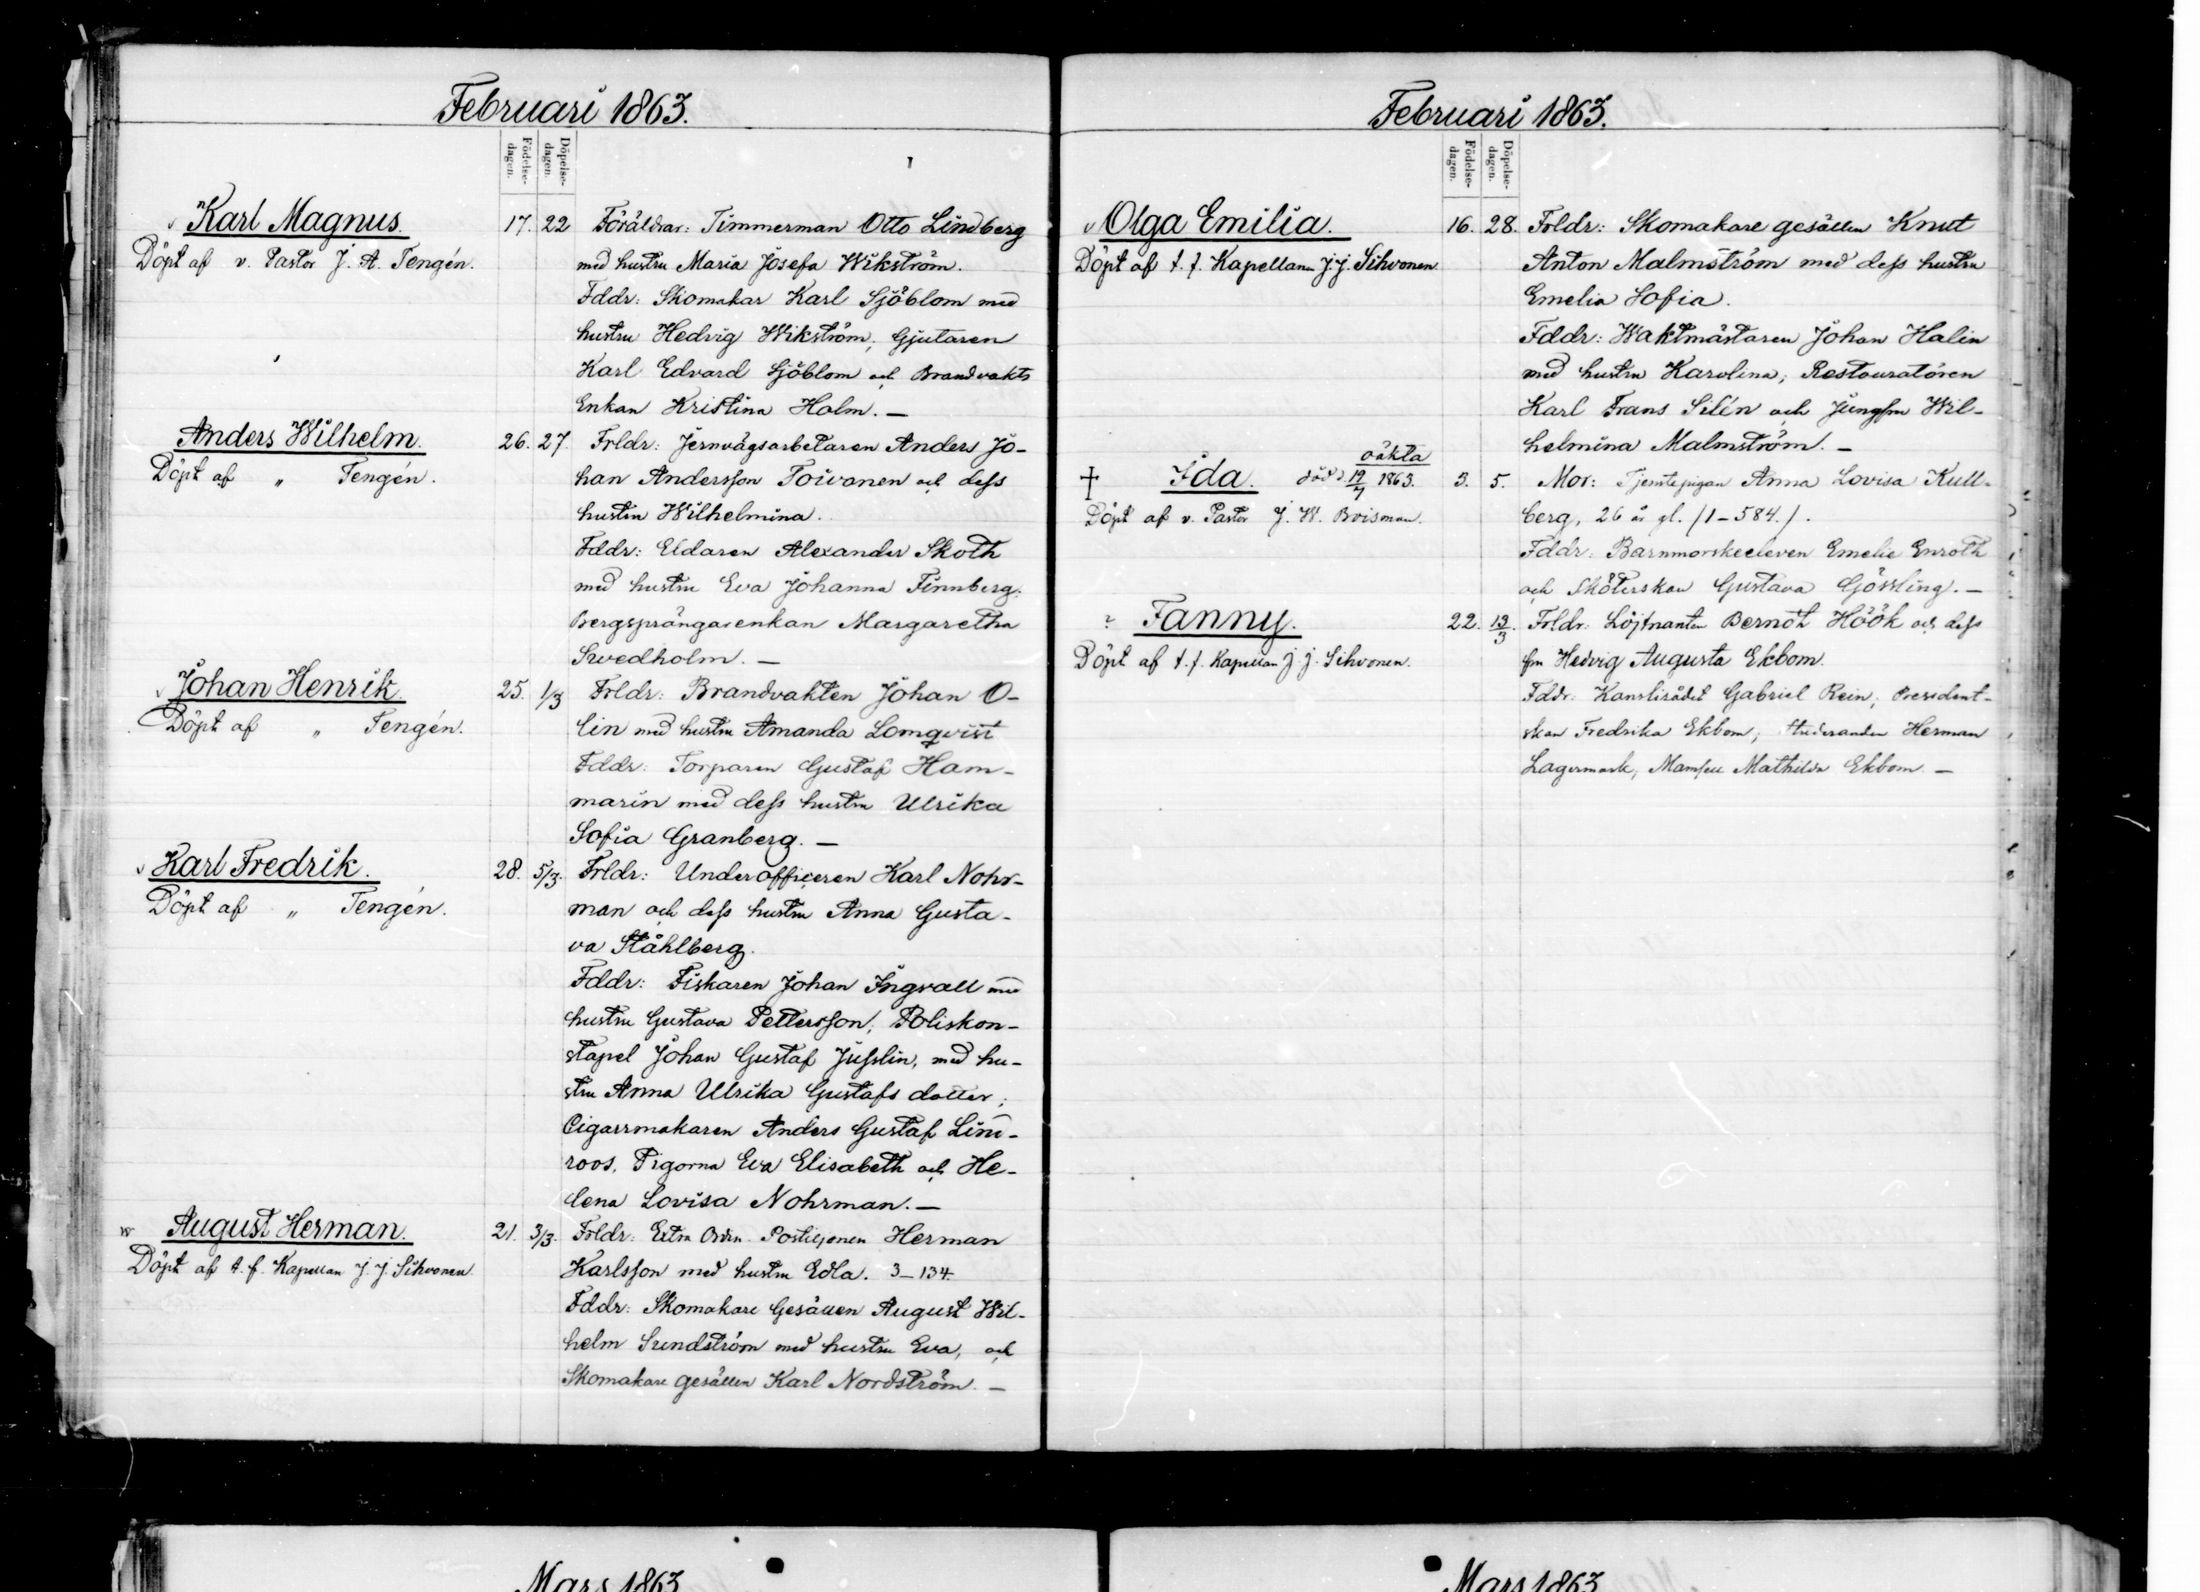 Februari 1863.
Födelse-
dagen.
Döpelse-
dagen.
Karl Magnus.
Döpt af v. Pastor J. A. Tengén.
17. 22
Föräldrar: Timmerman Otto Lindberg
med hustru Maria Josefa Wikström.
Fddr: Skomakar Karl Sjöblom med
hustru Hedvig Wikström; Gjutaren
Karl Edvard Sjöblom och Brandvakts
Enkan Kristina Holm. —
Anders Wilhelm.
Döpt af „ Tengén.
26. 27.
Frldr: Jernvägsarbetaren Anders Jo-
han Andersson Toivonen och dess
hustru Wilhelmina.
Fddr: Eldaren Alexander Skoth
med hustru Eva Johanna Finnberg;
Bergsprängarenkan Margaretha
Swedholm. —
v Johan Henrik.
Döpt af „ Tengén.
25. 1/3
Frldr: Brandvakten Johan O-
lin med hustru Amanda Lomqvist
Fddr: Torparen Gustaf Ham-
marin med dess hustru Ulrika
Sofia Granberg. —
v Karl Fredrik.
Döpt af „ Tengén.
28. 5/3.
Frldr: Underofficeren Karl Nohr-
man och dess hustru Anna Gusta-
va Ståhlberg.
Fddr: Fiskaren Johan Ingvall med
hustru Gustava Pettersson; Poliskon-
stapel Johan Gustaf Jusslin, med hu-
stru Anna Ulrika Gustafs dotter;
Cigarrmakaren Anders Gustaf Lind-
roos, Pigorna Eva Elisabeth och He-
lena Lovisa Nohrman. —
August Herman.
Döpt af t. f. Kapellan J. J. Sihvonen.
21. 3/3.
Frldr: Extra Ordn. Postiljonen Herman
Karlsson med hustru Edla. 3–134.
Fddr: Skomakare Gesällen August Wil-
helm Sundström med hustru Eva, och
Skomakare gesällen Karl Nordström. —
Februari 1863.
Födelse-
dagen.
Döpelse-
dagen.
v Olga Emilia.
Döpt af t. f. Kapellanen J. J. Sihvonen
16. 28.
Frldr: Skomakare gesällen Knut
Anton Malmström med dess hustru
Emelia Sofia.
Fddr: Waktmästaren Johan Halin
med hustru Karolina; Restauratören
Karl Frans Silén och Jungfru Wil-
helmina Malmström. —
oäkta
† Ida. död d. 19/7 1863.
Döpt af v. Pastor J. W. Boisman.
3. 5.
Mor: Tjenstepigan Anna Lovisa Kull-
berg, 26 år gl. /1–584./.
Fddr: Barnmorskeeleven Emelie Enroth
och Sköterskan Gustava Gössling. —
Fanny.
Döpt af t. f. Kapellan J. J. Sihvonen.
22. 13/3.
Frldr: Löjtnanten Bernót Höök och dess
fru Hedvig Augusta Ekbom.
Fddr: Kanslirådet Gabriel Rein; President-
skan Fredrika Ekbom; Studeranden Herman
Lagermark; Mamsell Mathilda Ekbom. —
Mars 1863
Mars 1863